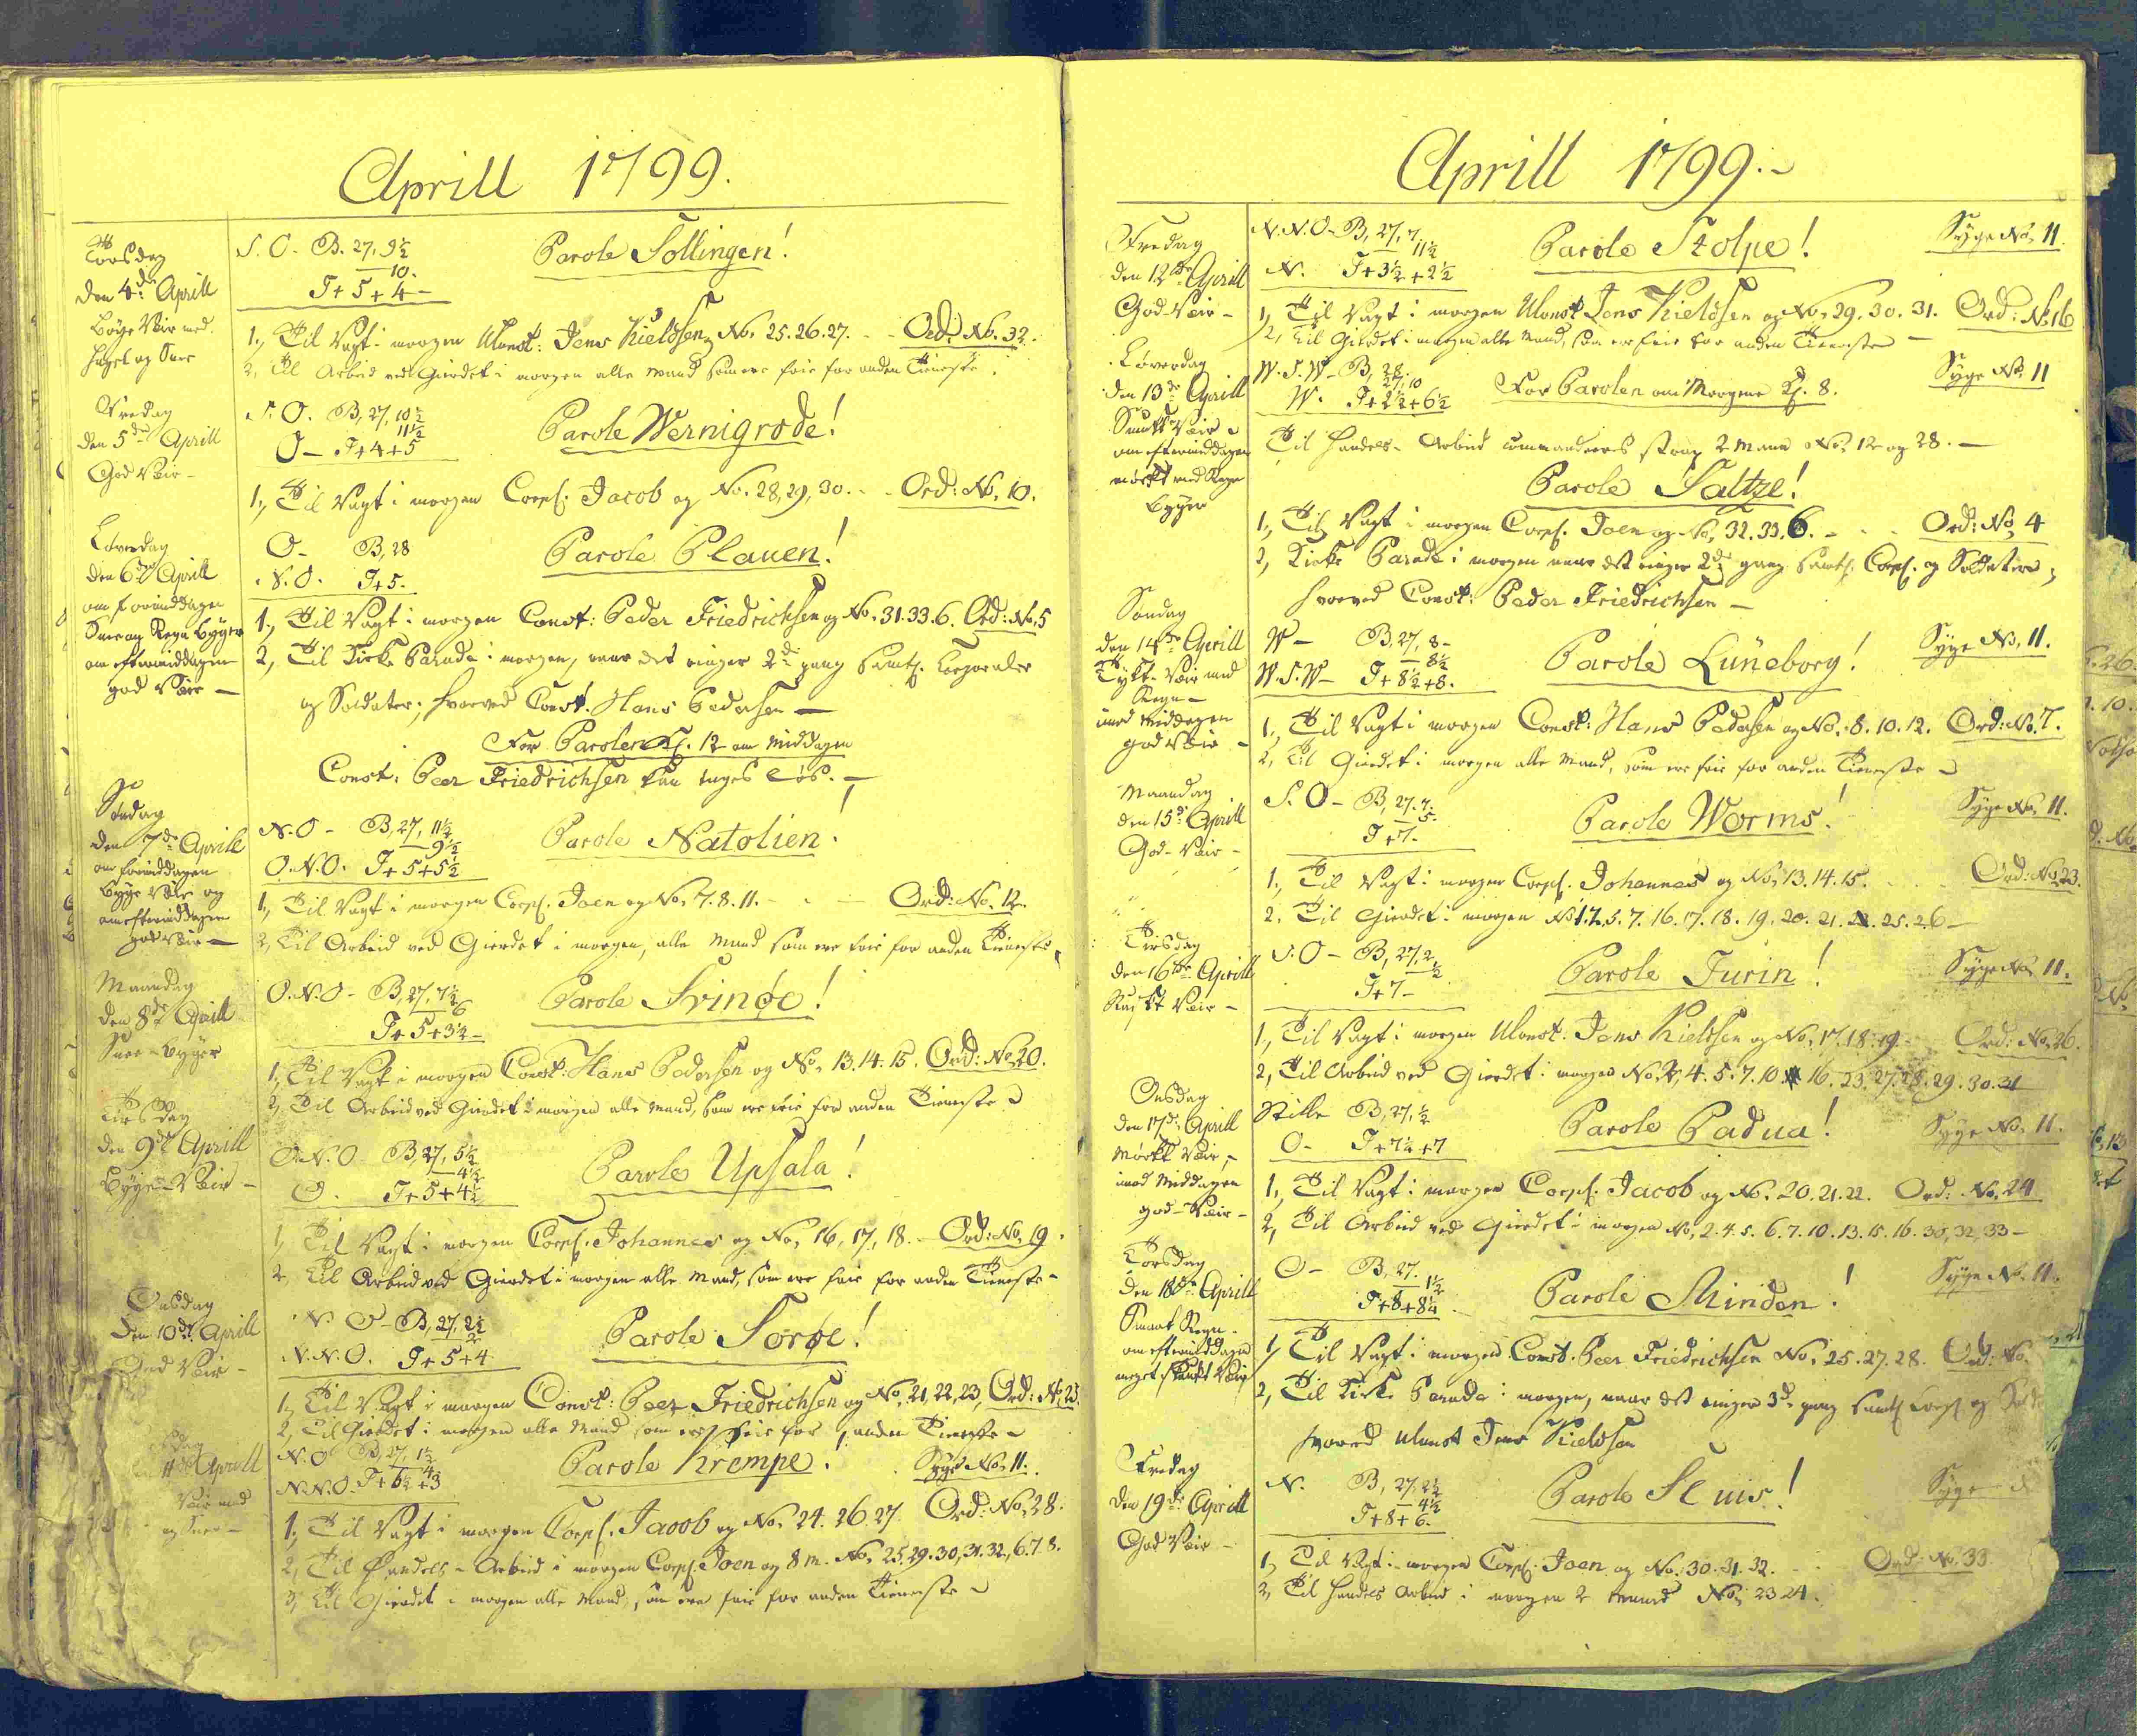 Aprill 1799.
Torsdag
den 4de Aprill
Bøge Veir med
Hagel og Snee
S. O. B. 27, 9½
10.
T+5+4-
Parole Sollingen!
1, Til Vagt i morgen Const: Jens Kieldsen, No. 25. 26. 27. - - Ord: No. 32.
2, Til Arbeid ved Gierdet i morgen alle Mand som ere frie for anden Tieneste.
Fredag
den 5de Aprill
God Veir -
S. O. B, 27, 10½
11½
O- T+4+5
Parole Wernigrode!
1, Til Vagt i morgen Corpl. Jacob og No. 28, 29, 30. - - Ord: No. 10.
Løverdag
den 6te Aprill
om formiddagen
Snee og Regn Byger
om eftermiddagen
god Veir -
O- B, 28
S. O. T+5.
Parole Plauen!
1, Til Vagt i morgen Const: Peder Friedrichsen og No. 31. 33. 6. Ord: No. 5
2, Til Kirke Parade i morgen, naar det ringer 2de gang samtl. Corporaler
og Soldater; hvorved Const. Hans Pedersen -
Før Parolen Kl. 12 om Middagen
Const: Peer Friedrichsen kan tages løs. -
Søndag
den 7de Aprill
om formiddagen
Byge Veir og
om eftermiddagen
god Veir -
N. O - B, 27, 11½
9½
O.N.O. T+5+5½
Parole Natolien!
1, Til Vagt i morgen Corpl. Joen og No, 7. 8. 11. - - Ord: No. 12.
2, Til Arbeid ved Gierdet i morgen, alle Mand som ere frie for anden Tieneste,
Maandag
den 8de Aprill
Snee-byger
O.N.O - B, 27, 7½
6
T+5+3½-
Parole Svinøe!
1, Til Vagt i morgen Const: Hans Pedersen og No, 13. 14. 15. Ord: No. 20.
2, Til Arbeid ved Gierdet i morgen alle Mand, som ere frie for anden Tieneste
Tirsdag
den 9de Aprill
Byge-Veir -
O.N.O B, 27, 5½
4½
O. T+5+4½
Parole Upsala!
1, Til Vagt i morgen Corpl. Johannes og No, 16, 17, 18. - Ord: No. 19.
2, Til Arbeid ved Gierdet i morgen alle Mand, som ere frie for anden Tieneste -
Onsdag
den 10de Aprill
God Veir -
N. O - B, 27, 2½
2
N.N.O. T+5+4
Parole Sorøe!
1, Til Vagt i morgen Const: Peer Friedrichsen og No, 21, 22, 23, Ord: No. 25.
2, Til Gierdet i morgen alle Mand som ere frie for anden Tieneste -
11te Aprill
Veir med
og Snee -
N. O B, 27, 1½
4
N.N.O. T+6½+3
Parole Krempe!
Syge No. 11.
1, Til Vagt i morgen Corpl. Jacob og No, 24. 26. 27. Ord: No. 28.
2, Til Handels-Arbeid i morgen Corpl. Joen og 8 M. No, 25. 29. 30, 31. 32, 6. 7. 8.
3, Til Gierdet i morgen alle Mand, som ere frie for anden Tieneste -
Aprill 1799. -
Fredag
den 12te Aprill
God-Veir -
N.N.O - B, 27, 7
11½
N. T+3½+2½
Parole Stolpe!
Syge No, 11.
1, Til Vagt i morgen Const Jens Kieldsen og No, 29. 30. 31. Ord: No. 16
2, Til Gierdet i morgen alle Mand, som ere frie for anden Tieneste -
Løverdag
den 13de Aprill
Smukt Veir
om eftermiddagen
mørkt med Regn
byger
W.S.W - B, 28.
27, 10
W. T+2½+6½
Før Parolen om Morgenen Kl. 8.
Syge No, 11
Til Handels-Arbeid commanderes strax 2 Mann No, 12 og 28. -
Parole Saltze!
1, Til Vagt i morgen Corpl. Joen og No, 32. 33. 6. - - Ord: No, 4
2, Kirke Parade i morgen naar det ringer 2de gang samtl. Corpl. og Soldater;
hvorved Const: Peder Friedrichsen -
Søndag
den 14de Aprill
Tykt Veir med
Regn -
imod Middagen
god Veir -
W - B, 27, 8-
8½
W.S.W - T+8½+8.
Parole Lüneborg!
Syge No, 11.
1, Til Vagt i morgen Const: Hans Pedersen og No. 8. 10. 12. Ord: No. 7.
2, Til Gierdet i morgen alle Mand, som ere frie for anden Tieneste -
Maandag
den 15de Aprill
God-Veir -
S. O - B, 27. 7.
5.
T+7.
Parole Worms!
Syge No, 11.
1, Til Vagt i morgen Corpl. Johannes og No, 13. 14. 15. Ord: No. 23.
2, Til Gierdet i morgen No 1. 2. 5. 7. 16. 17. 18. 19. 20. 21. 22. 25. 26 -
Tirsdag
den 16de Aprill
Rusk Veir -
S. O - B, 27, 2
½
T+7-
Parole Turin!
Syge No, 11.
1, Til Vagt i morgen Const: Jens Kieldsen og No, 17. 18. 19. Ord: No. 26.
2, Til Arbeid ved Gierdet i morgen No. 2, 4. 5. 7. 10 16. 23, 27. 28. 29. 30. 31
Onsdag
den 17de Aprill
Mørkt Veir, -
imod Middagen
god-Veir -
Stille B, 27, ½
O- T+7½+7
Parole Padua!
Syge No. 11.
1, Til Vagt i morgen Corpl. Jacob og No. 20. 21. 22. Ord: No, 24
2, Til Arbeid ved Gierdet i morgen No, 2. 4. 5. 6. 7. 10. 13. 15. 16. 30, 32, 33 -
Torsdag
den 18de Aprill
Smaat Regn.
om eftermiddagen
meget smukt Veir
O- B, 27.
1½
T+8+8¼
Parole Minden!
Syge No. 11.
1, Til Vagt i morgen Const. Peer Friedrichsen No, 25. 27. 28. Ord: No.
2, Til Kirke Parade i morgen, naar det ringer 3de gang samtl Corpl og
hvorved Const Jens Kieldsen
Fredag
den 19de Aprill
God Veir -
N. B, 27, 2½
4½
T+8+6.
Parole Sluis!
Syge
1, Til Vagt i morgen Corpl. Joen og No. 30. 31. 32. Ord: No. 33
2, Til Handels Arbeid i morgen 2 Mand No, 23 24.